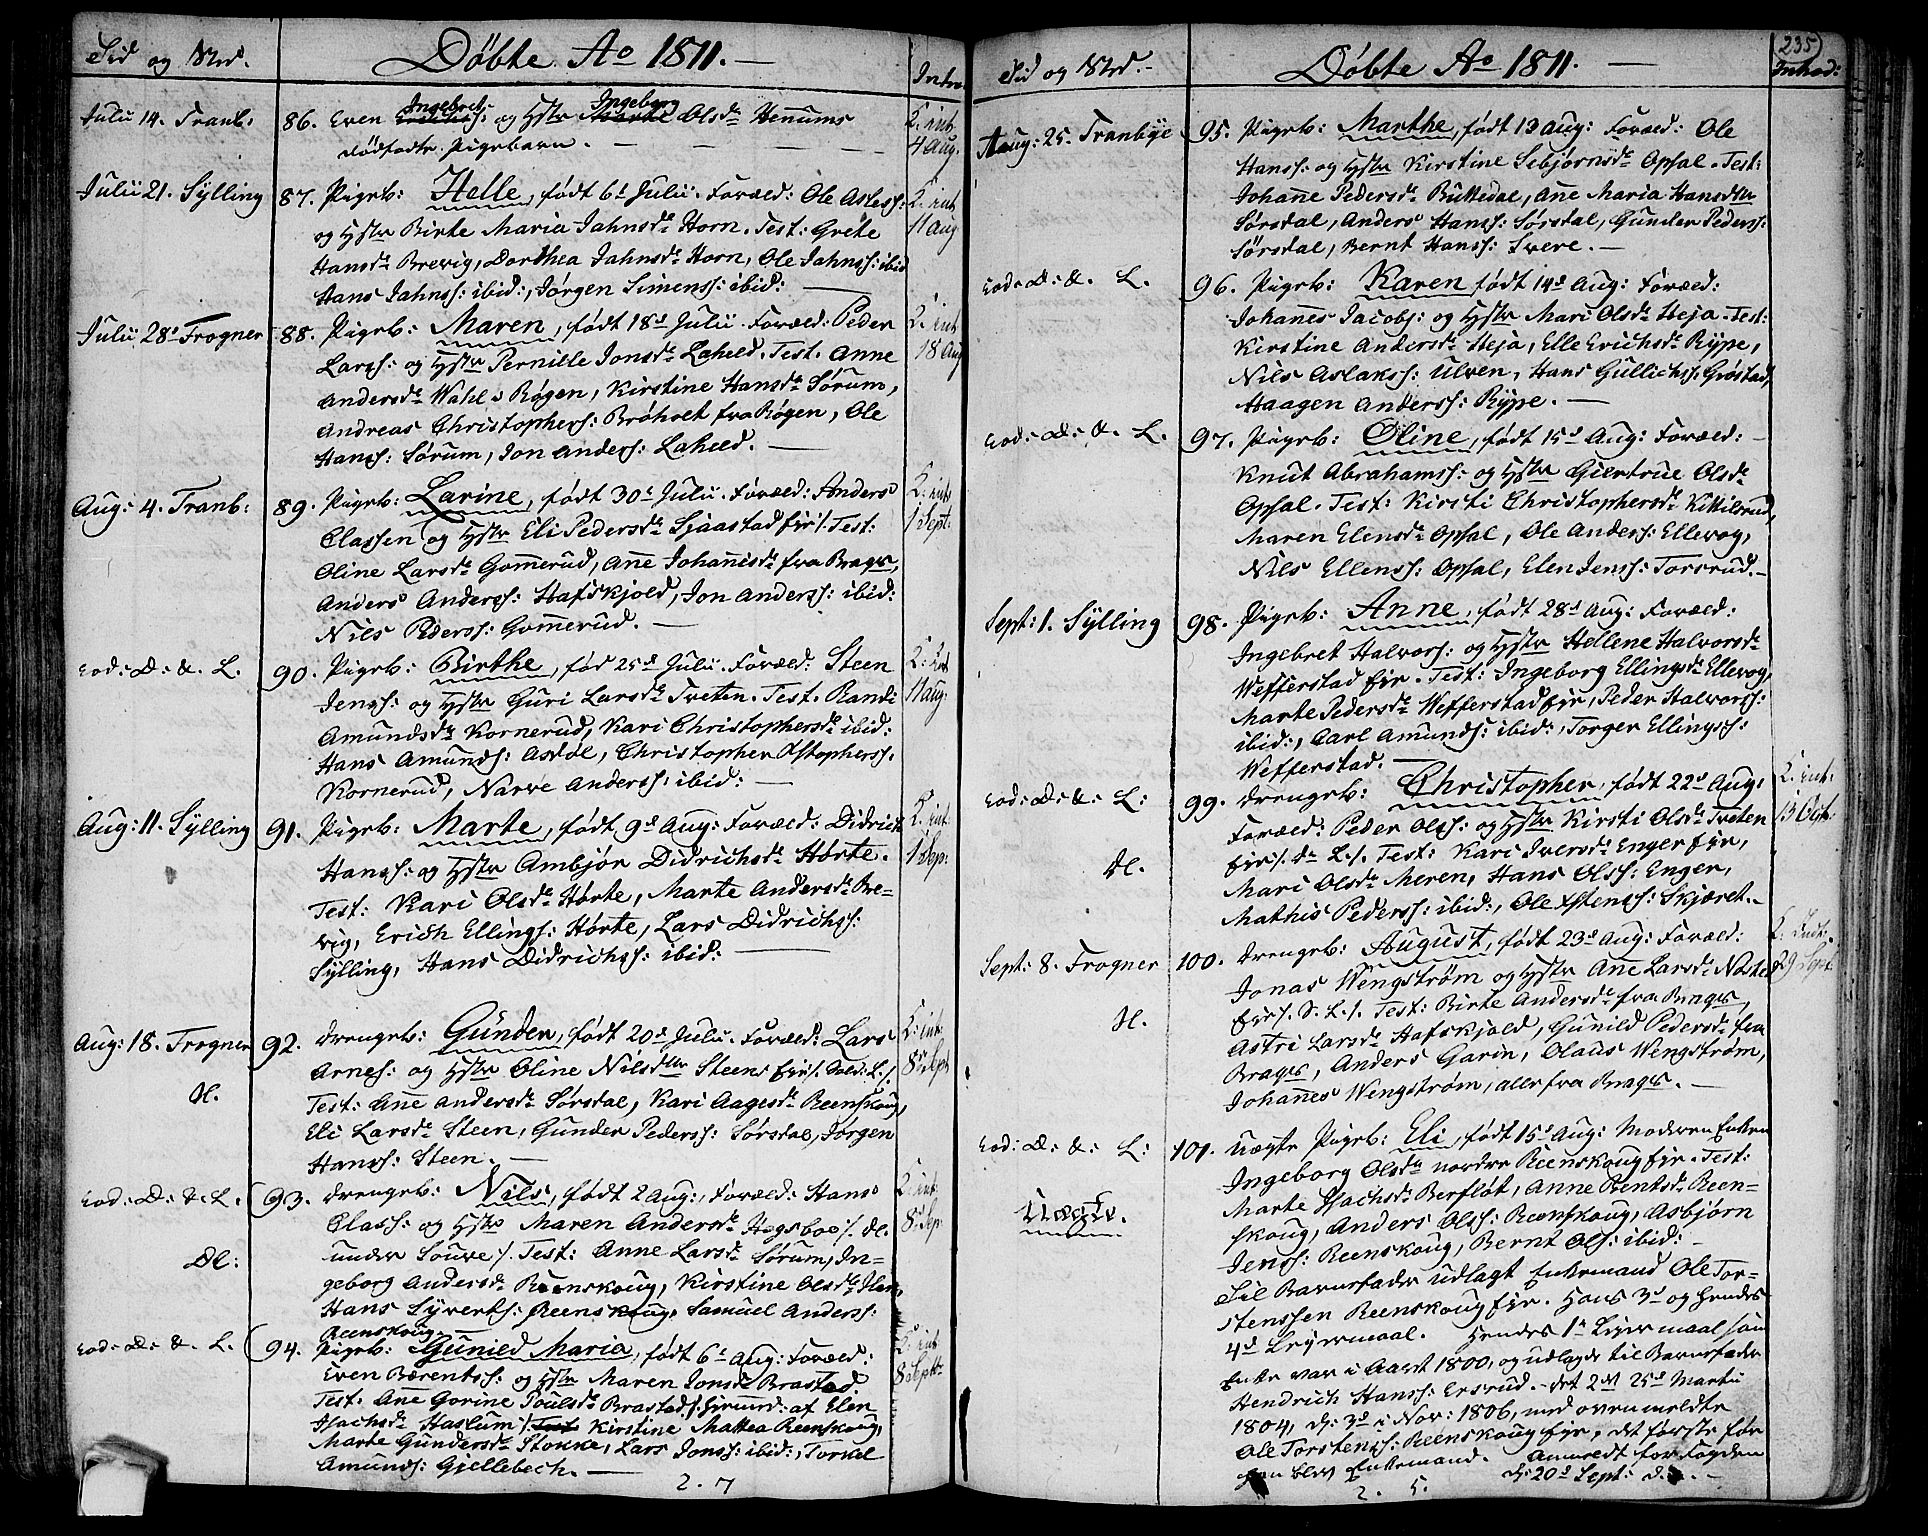 Tid og Sted.
Døbte Ao 1811.
Introd
Julii 14. Tranb:
86. Even Ingebretss: og Hstr Ingeborg Olsdr Henums
dødfødte Pigebarn.
K: int
4 Aug.
Julii 21. Sylling
87. Pigeb: Helle, født 6d Julii. Foræld: Ole Asless:
og Hstr Birte Maria Jahnsdr Horn. Test: Grete
Hansdr Brewig, Dorthea Jahnsdr Horn, Ole Jahnss: ibid
Hans Jahnss: ibid:, Jørgen Simenss: ibid:
K: int
11 Aug
Julii 28d Frogner
88. Pigeb: Maren, født 18d Julii. Foræld: Peder
Larss: og Hstr Pernille Jonsdr Laheld. Test. Anne
Andersdr Wahl i Røgen, Kirstine Hansdr Sørum,
Andreas Christophers: Brøholt fra Røgen, Ole
Hanss: Sørum, Jon Anders: Laheld.
K: int
18 Aug
Aug: 4. Tranb:
89. Pigeb: Larine, født 30d Julii. Foræld: Anders
Classen og Hstr Eli Pedersdr Sjaastad eie/. Test:
Oline Larsdr Gomerud, Ane Johanisdr fra Brags,
Anders Anderss: Hafskjold, Jon Anderss: ibid:
Nils Pederss: Gomerud.
K: int
1 Sept:
eod: D: & L.
90. Pigeb: Birthe, fød 25d Julii. Foræld: Steen
Jenss: og Hstr Guri Larsdr Tveten. Test. Randi
Amundsdr Kornerud, Kari Christophersdr ibid:
Hans Amunds: Asdøl, Christopher Xstophers:
Kornerud, Narve Anderss: ibid:
K: int
11 Aug:
Aug: 11. Sylling
91. Pigeb: Marte, født 9d Aug: Foræld: Didrich
Hanss: og Hstr Ambjør Didrichsdr Hørte.
Test: Kari Olsdr Hørte, Marte Andersdr Bre-
wig, Erich Ellings: Hørte, Lars Didrichss:
Sylling, Hans Didrichss: ibid:
K. int:
1 Sep:
Aug: 18. Frogner
92. Drengeb: Gunder, født 20d Julii. Foræld: Lars
Arnes: og Hstr Oline Nilsdtr Steens eie/. Sold: L./.
Test: Ane Andersdr Sørsdal, Kari Aagesdr Reenskoug,
Eli Larsdr Steen, Gunder Pederss: Sørsdal, Jørgen
Hanss: Steen.
K: int:
8d Sept
eod: D: & L.
93. Drengeb: Nils, født 2 Aug:, Foræld: Hans
Class: og Hstr Maren Andersdr Hegsboe/.
under Souve/. Test: Anne Larsdr Sørum, In-
geborg Andersdr Reenskoug, Kirstine Olsdr
Hans Syverts: Reenskoug, Samuel Anderss:
Reenskoug.
K: int:
8d Sep
eod: D: & L.
94. Pigeb: Gunild Maria, født 6d Aug: Foræld:
Even Bærentss: og Hstr Maren Jonsdr Brastad.
Test: Ane Gorine Poulsdr Brastad
Isachsdr Haslum/. Kirstine Mattea Reenskoug,
Marte Gundersdr Stokke, Lars Jonss: ibid:, Torkel
Amunds: Gjellebech.
K: int
8 Sept:
2. 7
235)
Tid og Sted.
Døbte Ao 1811.
Introd:
Aug: 25. Tranbye
95. Pigeb: Marthe, født 13 Aug: Foræld: Ole
Hanss: og Hstr Kirstine Sebjørnsdr Opsal. Test:
Johane Pedersdr Buttedal, Ane Maria Hansdtr
Sørsdal, Anders Hanss: Sørsdal, Gunder Pederss:
Sørsdal, Bernt Hanss: Svere.
eod: D: & L.
96. Pigeb: Karen født 14d Aug: Foræld:
Johanes Jacobs: og Hstr Mari Olsdr Heja. Test:
Kirstine Andersdr Heja, Elle Erichsdr Rype,
Nils Aslakss: Ulven, Hans Gullichs: Grøstad,
Haagen Anderss: Rype.
eod: D: & L.
97. Pigeb: Oline, født 15d Aug: Foræld:
Knut Abrahamss: og Hstr Giertrue Olsdr
Opsal. Test: Kirsti Christophersdr Kittilsrud,
Maren Elensdr Opsal, Ole Anders: Ellevog,
Nils Ellenss: Opsal, Elen Jenss: Torsrud.
Sept: 1. Sylling
98. Pigeb: Anne, født 28d Aug: Foræld:
Ingebret Halvors: og Hstr Hellene Halvorsdr
Wefferstad eje. Test: Ingeborg Ellingsdr Ellevog,
Marte Pedersdr Wefferstad eje, Peder Halvorss:
ibid:, Carl Amunds: ibid:, Torger Ellings:
Wefferstad.
eod: D: & L:
99. Drengeb: Christopher, født 22d Aug:
Foræld: Peder Olss: og Hstr Kirsti Olsdr Tveten
eje/. L./. Test: Kari Iversdr Enger eje,
Mari Olsdr Meren, Hans Olss: Enger,
Mathis Pederss: ibid:, Ole Xstens: Skjæret.
K. int:
13 Oct:
Sept: 8. Frogner
100. Drengeb: August, født 23d Aug: Foræld:
Jonas Wengstrøm og Hstr Ane Larsdr Nøste
eje/. S. L./. Test: Birte Andersdr fra Brags,
Astri Larsdr Hafskjold, Gunild Pedersdr fra
Brags, Anders Garin, Olaus Wengstrøm,
Johanes Wengstrøm, alle fra Brags.
K. Int:
29 Sept.
eod: D: & L:
Uægte.
101. Uægte Pigeb: Eli, født 15d Aug: Moderen Enken
Ingeborg Olsdr nordre Reenskoug eje. Test:
Marte Isachsdr Berfløt, Anne Berntsdr Reen-
skoug, Anders Olss: Reenskoug, Asbjørn
Jenss: Reenskoug, Bernt Ols: ibid:
Til Barnefader udlagt Enkemand Ole Tor-
stenssen Reenskoug eje. Hans 3d og hendes
4d Leiermaal. Hendes 1ste Leiermaal som
Enke var i Aaret 1800, og udlagde til Barnefader
Hendrich Hanss: Ersrud. det 2det 25d Martii
1804, d: 3d i Nov: 1806, med ovenmeldte
Ole Torstens: Reenskoug eje, det første før
han blev Enkemand. Anmeldt for Fogden
d: 20d Sept:
2. 5.